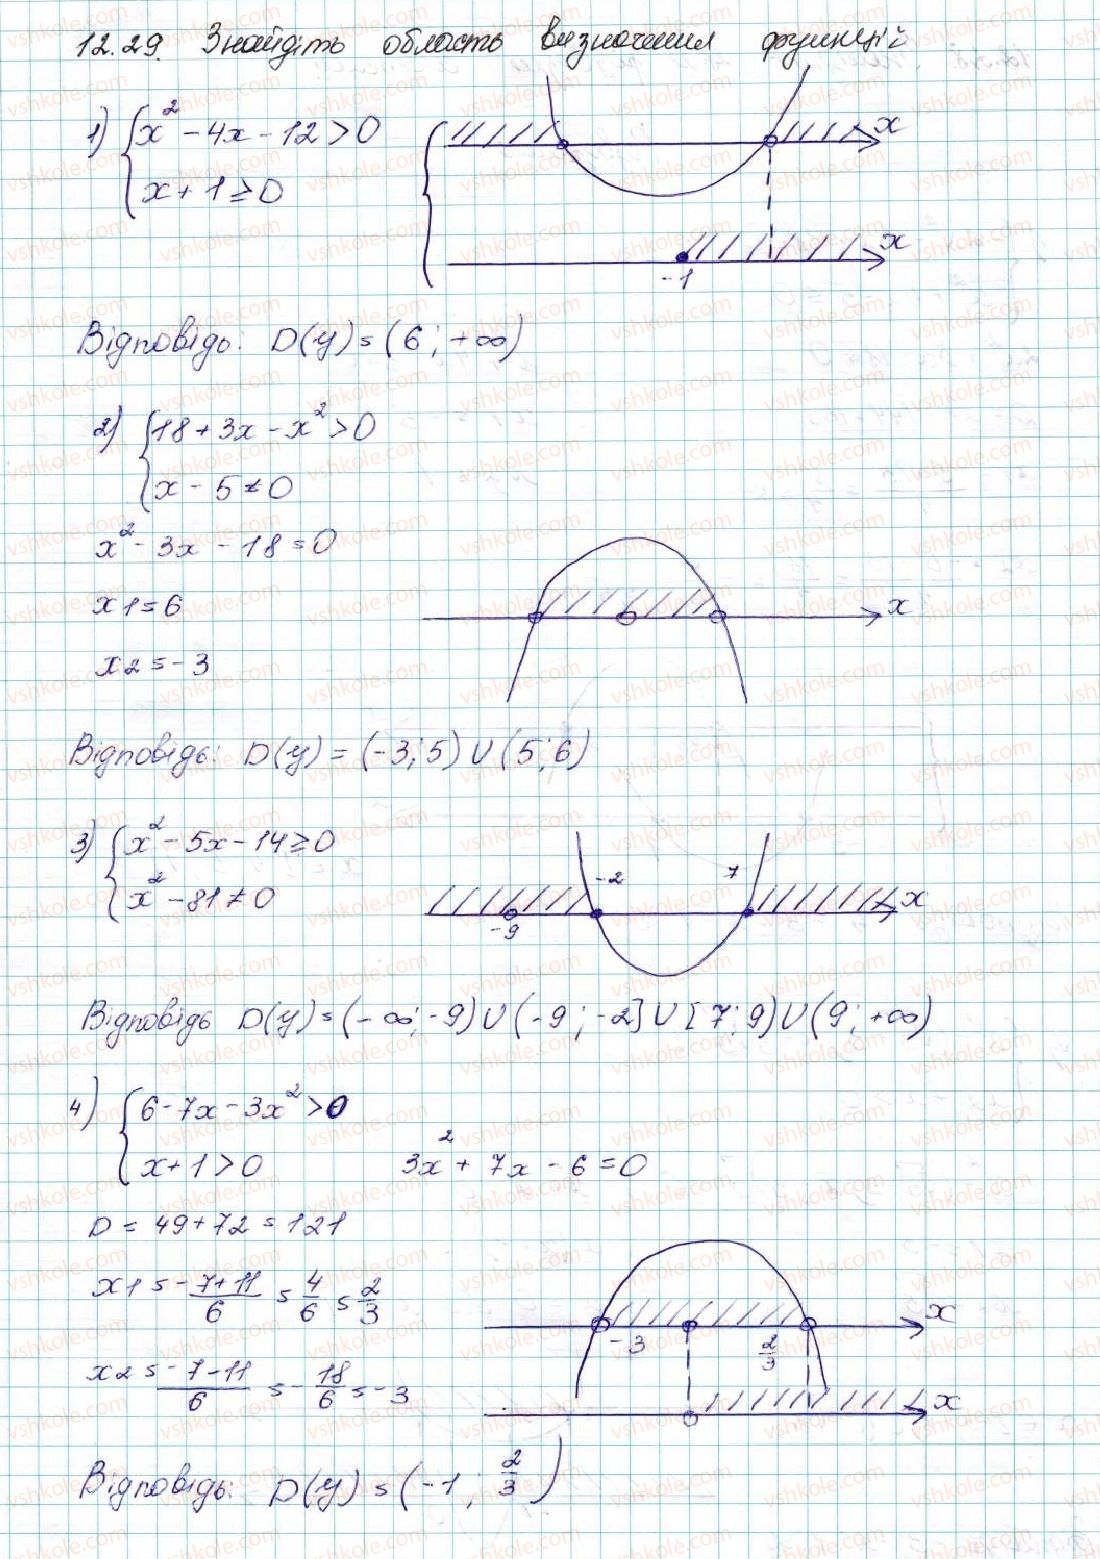 12.29. Знайдіть область визначення функції
1) { x² - 4x - 12 > 0
x + 1 ≥ 0
x
x
-1
Відповідь: D(y) = (6; +∞)
2) { 18 + 3x - x² > 0
x - 5 ≠ 0
x² - 3x - 18 = 0
x1 = 6
x2 = -3
x
Відповідь: D(y) = (-3; 5) U (5; 6)
3) { x² - 5x - 14 ≥ 0
x² - 81 ≠ 0
-2 7
x
-9
Відповідь D(y) = (-∞; -9) U (-9; -2] U [7; 9) U (9; +∞)
4) { 6 - 7x - 3x² > 0
x + 1 > 0
3x² + 7x - 6 = 0
D = 49 + 72 = 121
x1 = -7+11/6 = 4/6 = 2/3
x
-3 2/3
x2 = -7-11/6 = -18/6 = -3
x
Відповідь: D(y) = (-1; 2/3)